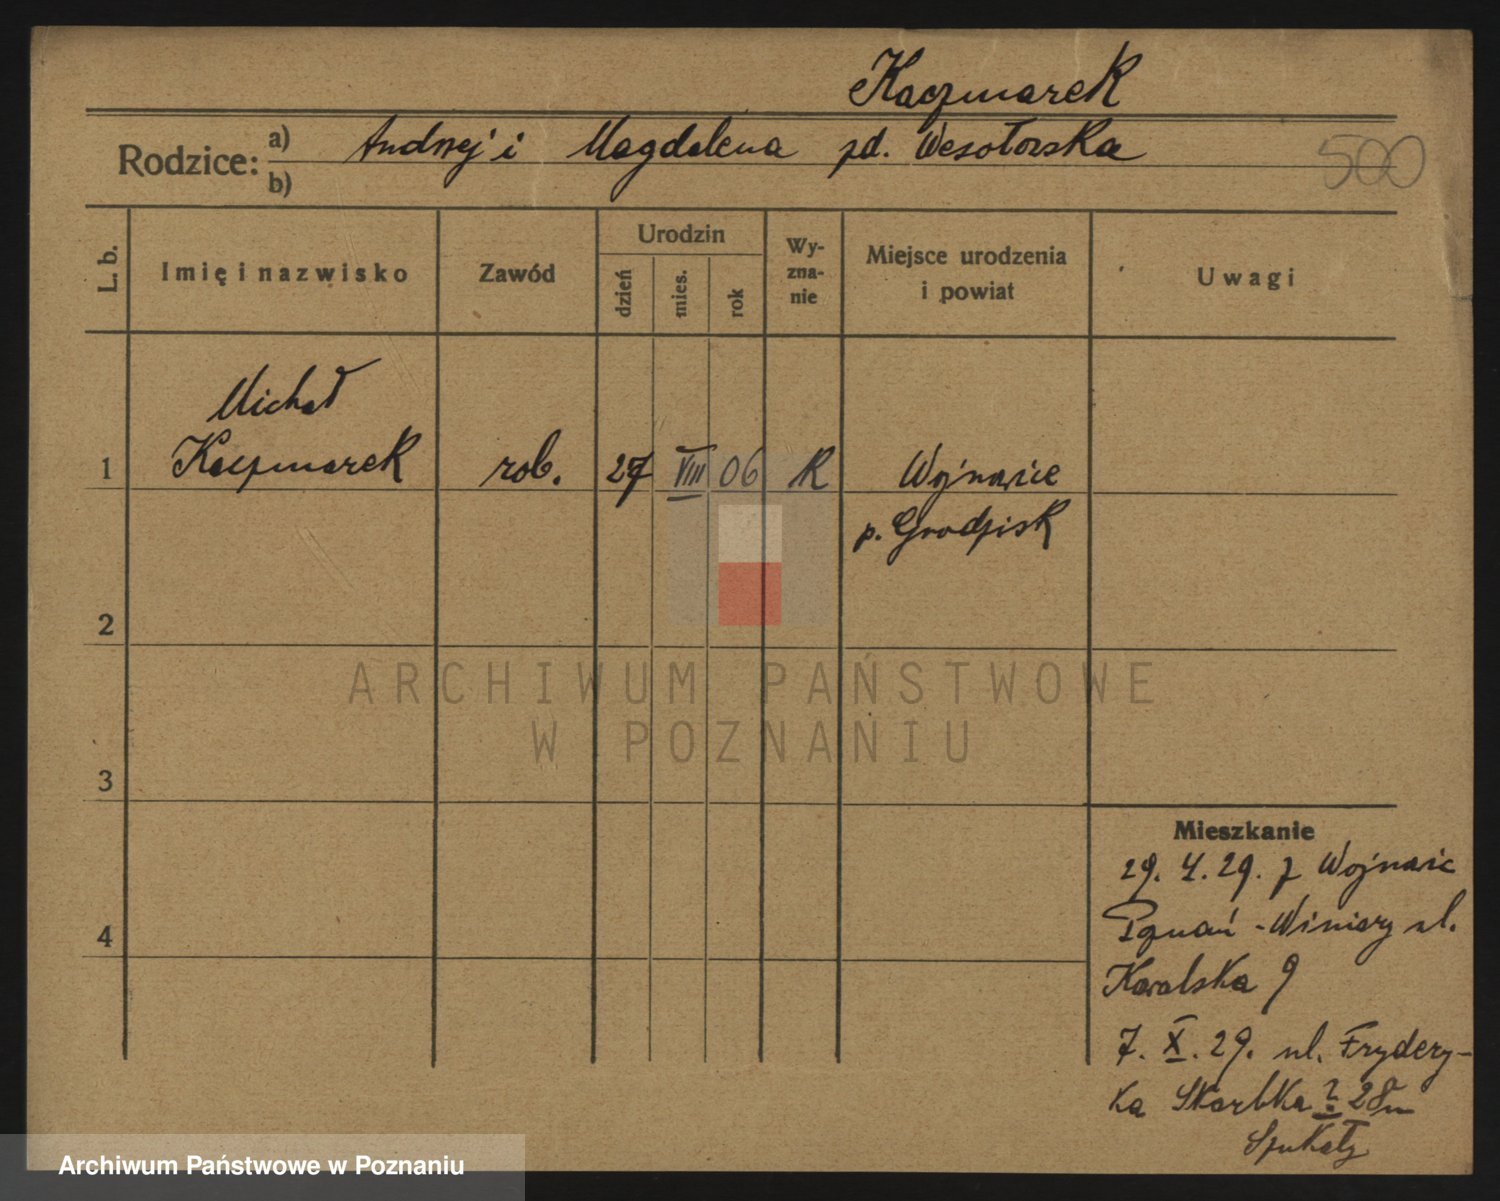 Kaczmarek
Rodzice: a) Andrzej i Magdalena zd. Wesołowska
b)
500
L. b.
Imię i nazwisko
Zawód
Urodzin
dzień
mies.
rok
Wy-
zna-
nie
Miejsce urodzenia
i powiat
Uwagi
Michał
1 Kaczmarek rob. 27 VIII 06 R Wojnowice
p. Grodzisk
2
3
4
Mieszkanie
29. 4. 29. z Wojnowic
Poznań - Winiary ul.
Kowalska 9
7. X. 29. ul. Frydery-
ka Skarbka 28
ARCHIWUM PAŃSTWOWE
W POZNANIU
Archiwum Państwowe w Poznaniu